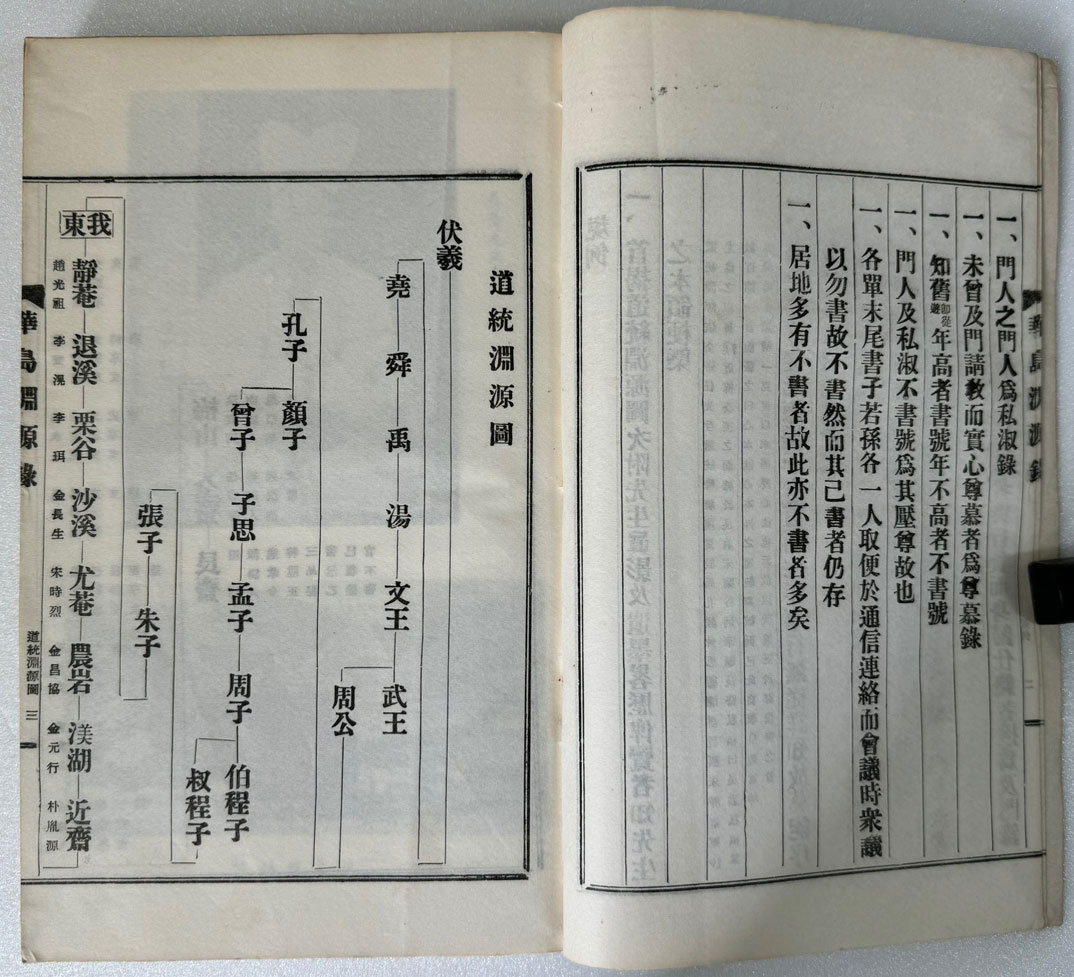 一、門人之門人爲私淑錄
一、未曾及門請教而實心尊慕者爲尊慕錄
一、知舊卽從遊年高者書號年不高者不書號
一、門人及私淑不書號爲其壓尊故也
一、各單末尾書子若孫各一人取便於通信連絡而會議時衆議
以勿書故不書然而其已書者仍存
一、居地多有不書者故此亦不書者多矣
道統淵源圖
伏羲
堯 舜 禹 湯 文王 武王
周公
孔子 顔子
曾子 子思 孟子 周子 伯程子
叔程子
張子 朱子
我東 靜菴 退溪 栗谷 沙溪 尤菴 農岩 渼湖 近齋
趙光祖 李滉 李珥 金長生 宋時烈 金昌協 金元行 朴胤源
華島淵源錄 道統淵源圖 三